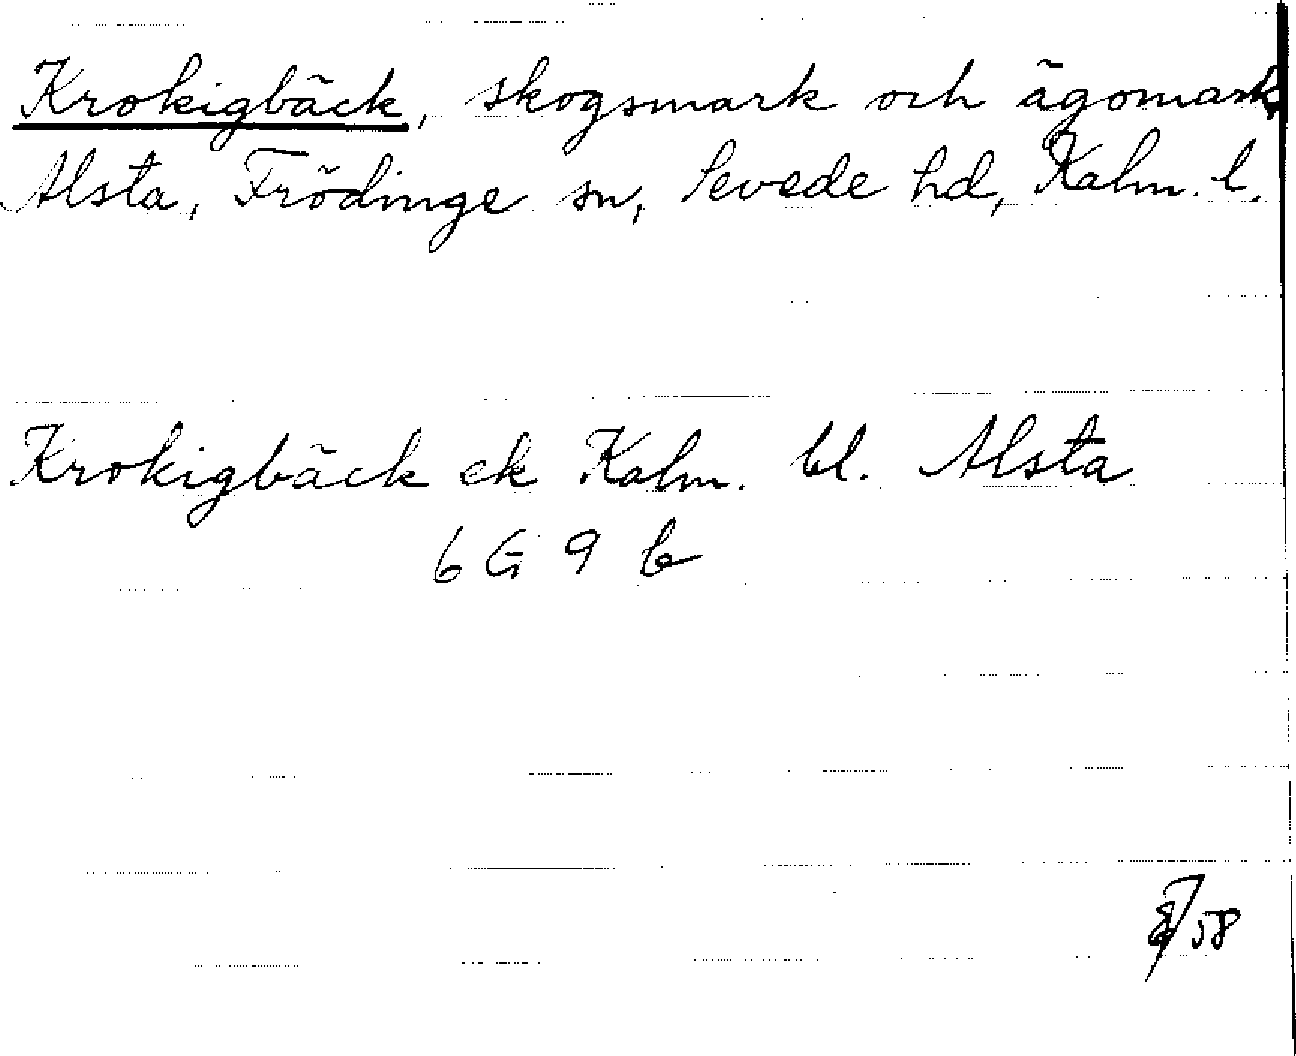 Krokigbäck, skogsmark och ägomark,
Alsta, Frödinge sn, Sevede hd, Kalm. l.
Krokigbäck ek Kalm. bl. Alsta
6 G 9 b
58